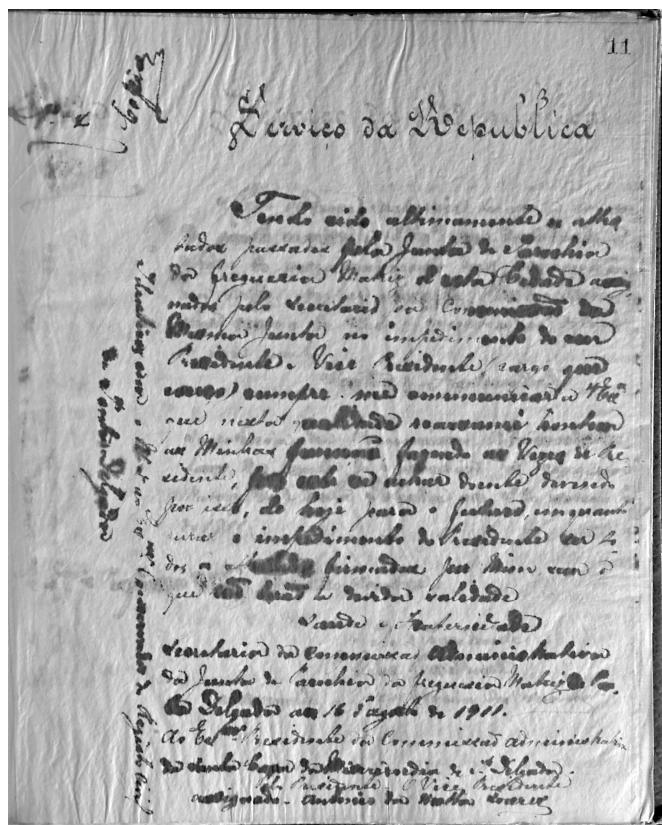 11
Serviço da Republica
Tendo sido ultimamente os attes
tados passados pela Junta de Parochia
da freguezia Matriz d'esta Cidade assi
nados pelo secretario da Commissão da
mesma Junta no impedimento do seu
Presidente e Vice Presidente, cargo que
exerço, cumpre-me communicar a V. Exª
que nesta qualidade reassumi hontem
as minhas funcções, fazendo as vezes de Pre
sidente, por este se achar doente devendo
por isso, de hoje para o futuro, emquanto
durar o impedimento do Presidente ser to
dos os attestados firmados por mim sem o
que não terão a devida validade
Saude e Fraternidade
Secretaria da Commissão Administrativa
da Junta de Parochia da freguezia Matriz de Pon
ta Delgada aos 16 d'agosto de 1911.
Ao Exmo Presidente da Commissão administrativa
da Santa Casa da Misericordia de P. Delgada.
Pelo Presidente O Vice Presidente
assignado - Antonio da Motta Soares
Identico com o ao Conservador do Registo Civil
de Ponta Delgada